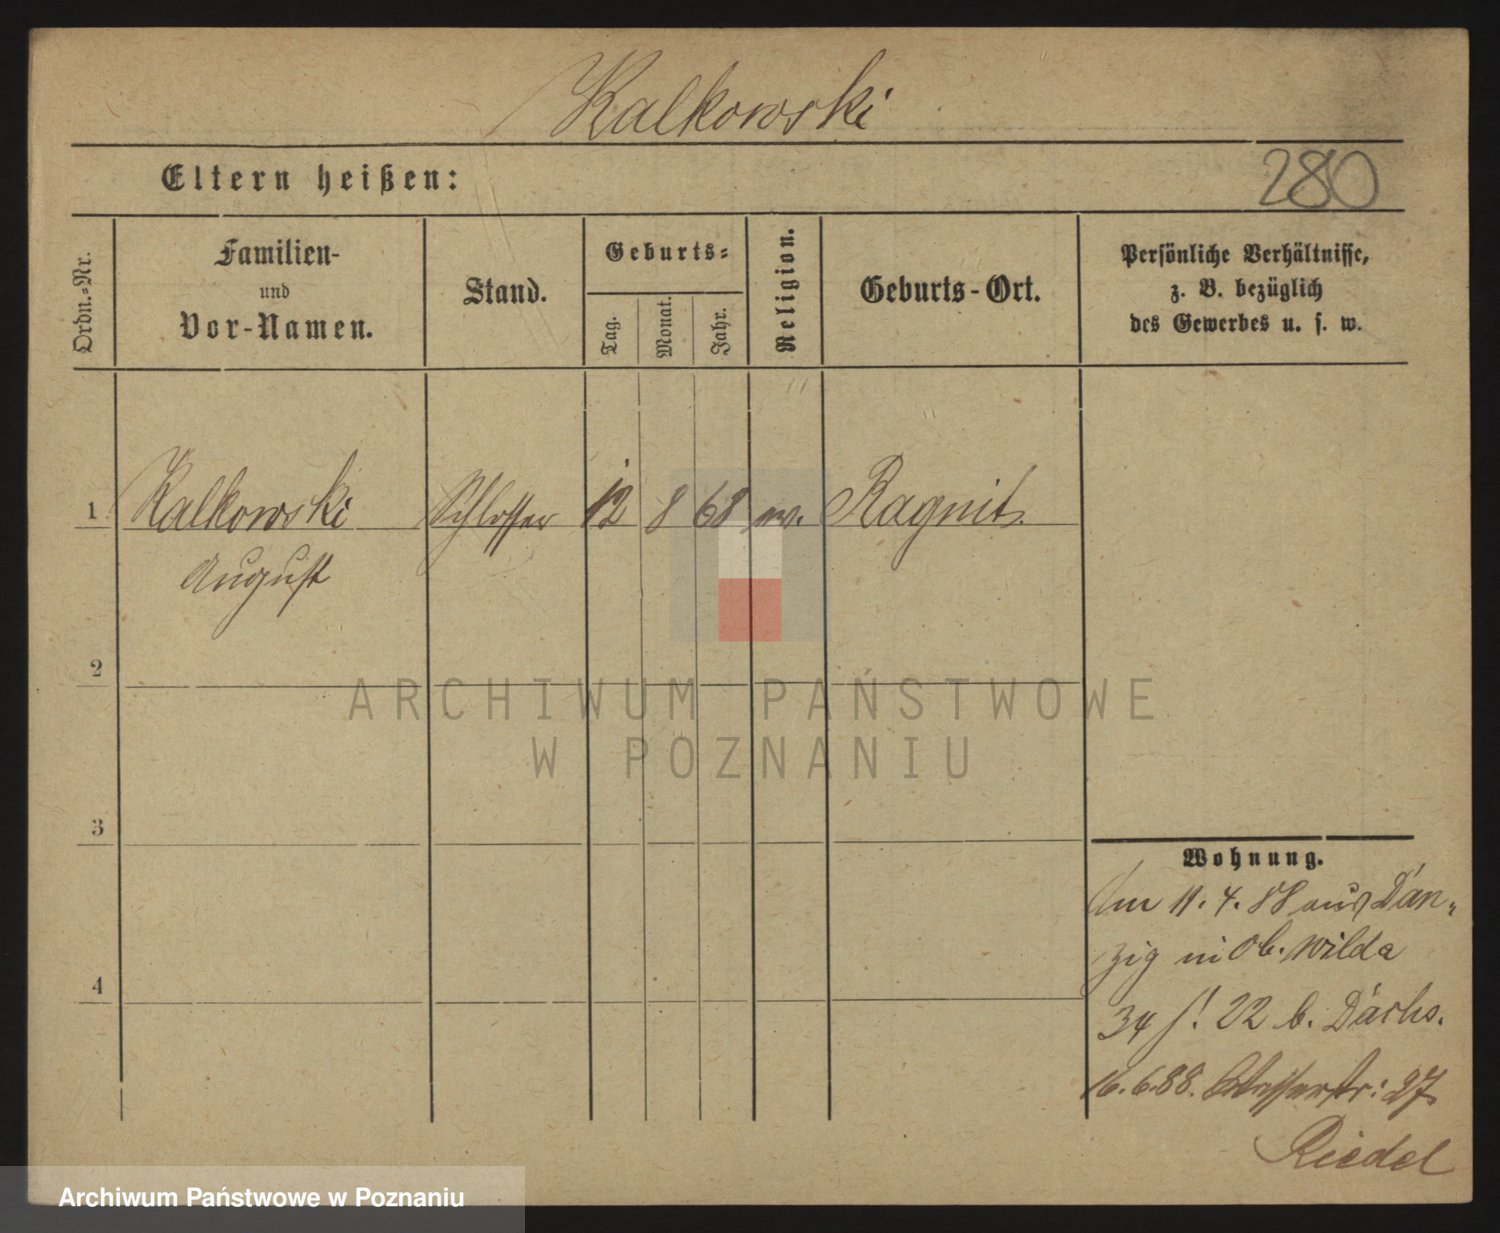 Kalkowski
Eltern heißen:
280
Ordn.-Nr.
Familien-
und
Vor-Namen.
Stand.
Geburts-
Tag.
Monat.
Jahr.
Religion.
Geburts-Ort.
Persönliche Verhältnisse,
z. B. bezüglich
des Gewerbes u. s. w.
1 Kalkowski Schlosser 12 8 68 Ragnit
August
2
ARCHIWUM PAŃSTWOWE
W POZNANIU
3
4
Wohnung.
11. 4. 88 aus Dan-
zig Ob. Wilda
34 22 b. Dachs.
16.6.88. 27
Riedel
Archiwum Państwowe w Poznaniu